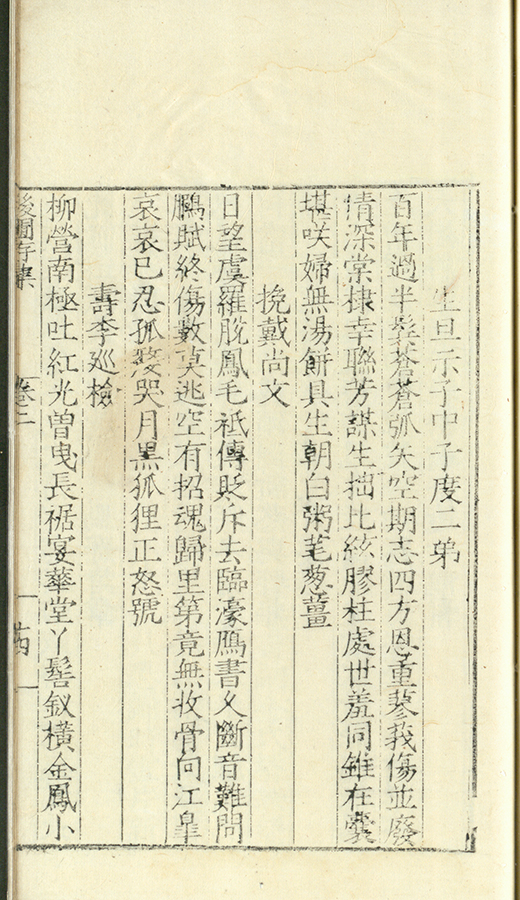 生旦示子中子度二弟
百年過半髮蒼蒼弧矢空期志四方恩重蓼莪傷並廢
情深棠棣幸聯芳謀生拙比絃膠柱處世羞同錐在囊
堪咲婦無湯餅具生朝白粥芼葱薑
挽戴尚文
日望虞羅脫鳳毛祗傳貶斥去臨濠鴈書久斷音難問
鵩賦終傷數莫逃空有招魂歸里第竟無收骨向江臯
哀哀已忍孤嫠哭月黑狐狸正怒號
壽李廵檢
柳營南極吐紅光曾曳長裾宴華堂丫髻釵橫金鳳小
後圃存集 卷二 十四